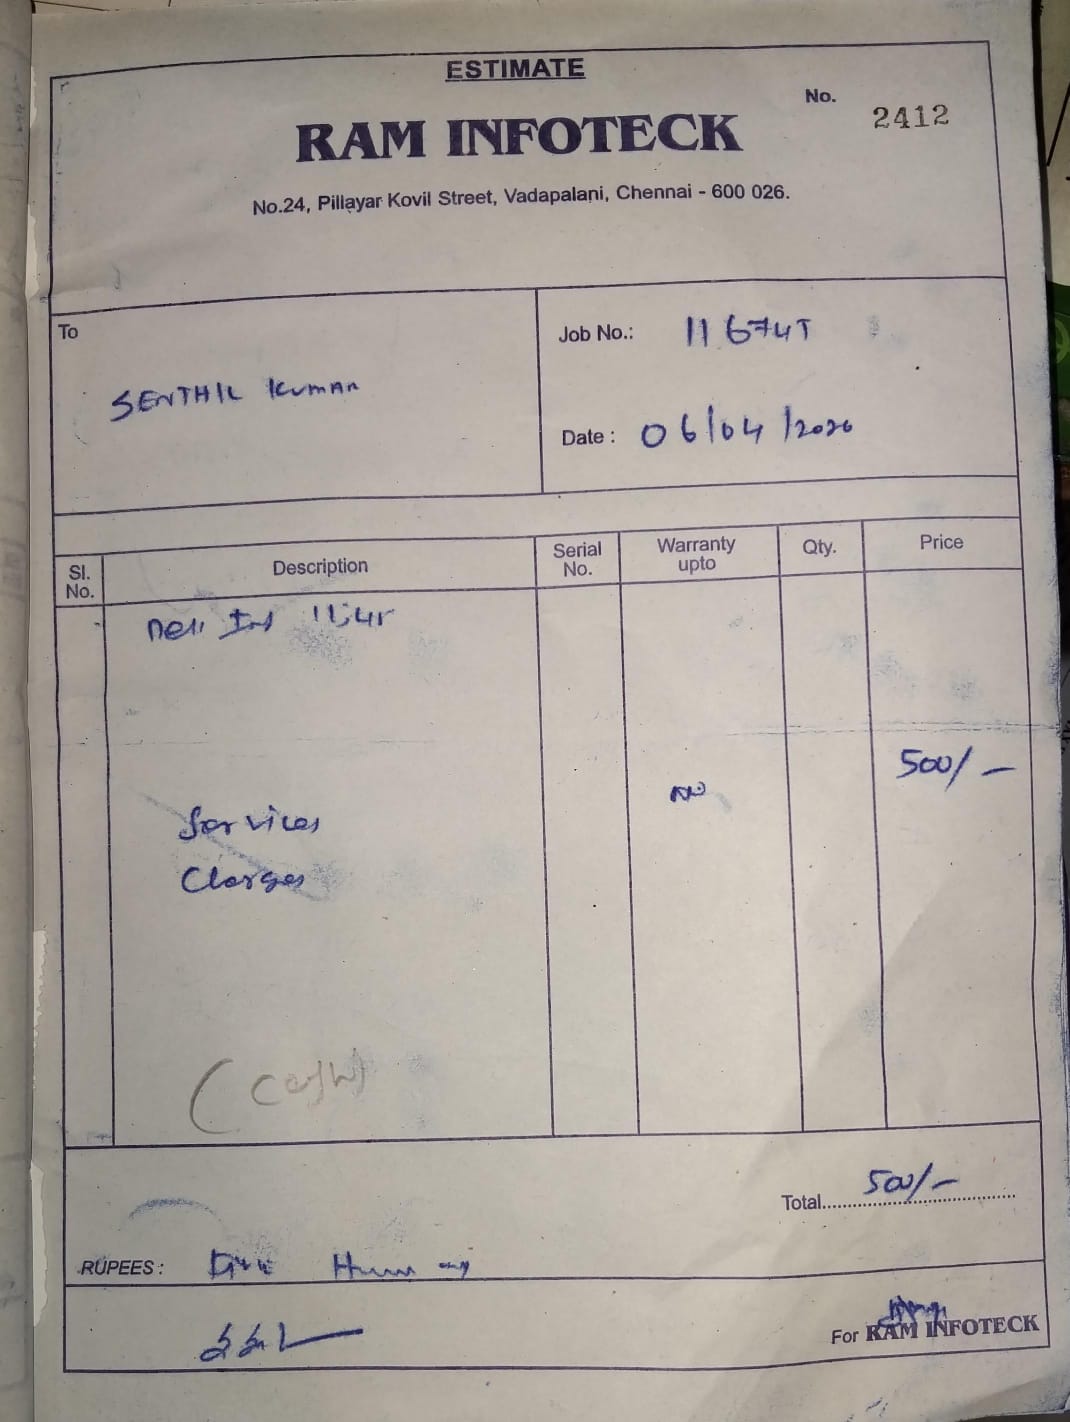 ESTIMATE
No. 2412
RAM INFOTECK
No.24, Pillayar Kovil Street, Vadapalani, Chennai - 600 026.
To
SENTHIL KUMAR
Job No.: 11674T
Date : 06/04/2026
Sl. No. Description Serial No. Warranty upto Qty. Price
Dell
500/-
Services NO
Charges
(Cash)
Total 500/-
RUPEES : Five Hun
For RAM INFOTECK